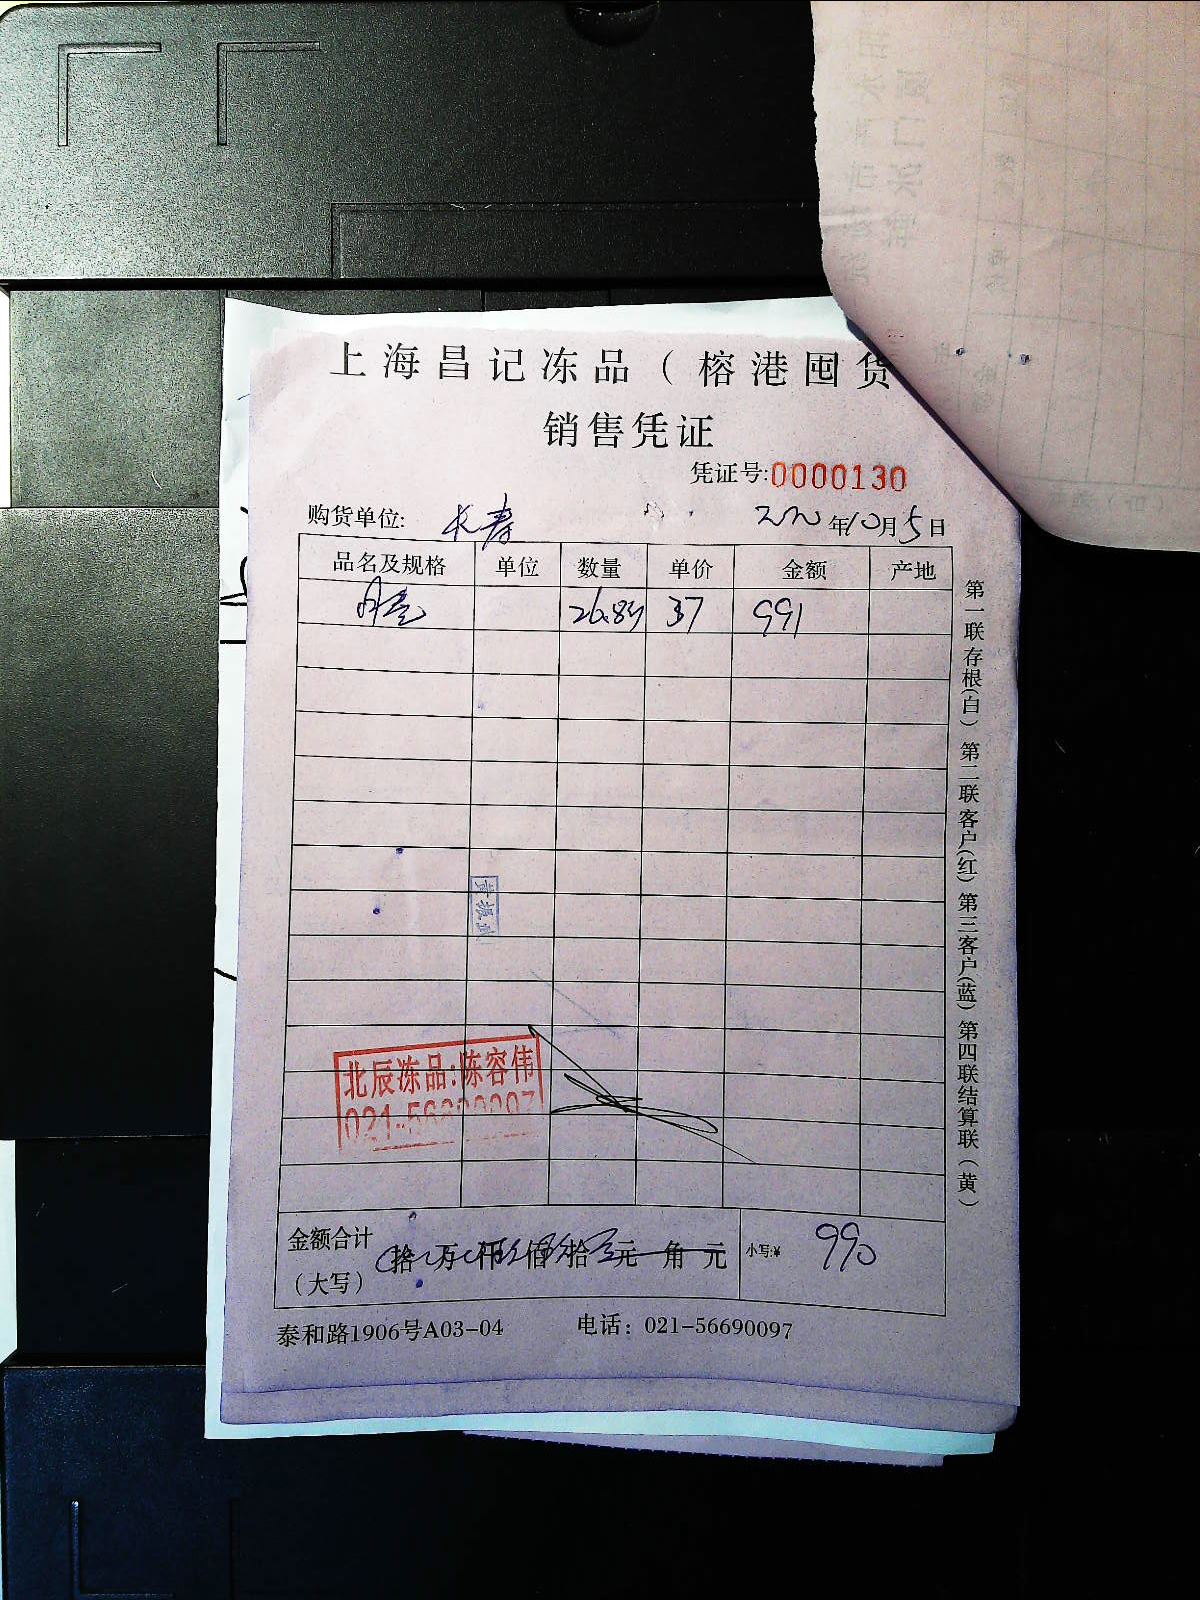 上海昌记冻品（榕港囤货
销售凭证
凭证号:0000130
购货单位: 长寿 2020年10月5日
品名及规格 单位 数量 单价 金额 产地
26.8 37 991
第一联存根(白) 第二联客户(红) 第三客户(蓝) 第四联结算联(黄)
北辰冻品:陈容伟
金额合计 拾 万 仟 佰 拾 元 角 元 小写:¥ 990
（大写）
泰和路1906号A03-04 电话：021-56690097